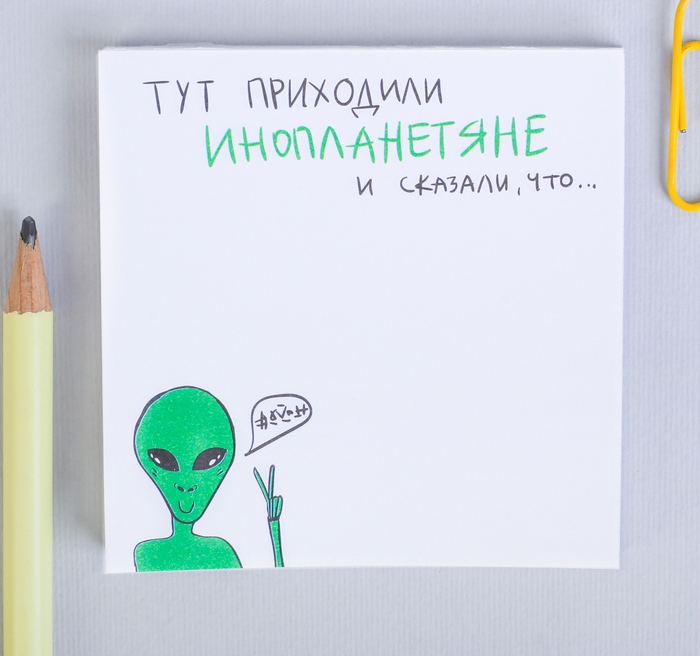 ТУТ ПРИХОДИЛИ
ИНОПЛАНЕТЯНЕ
И СКАЗАЛИ, ЧТО...